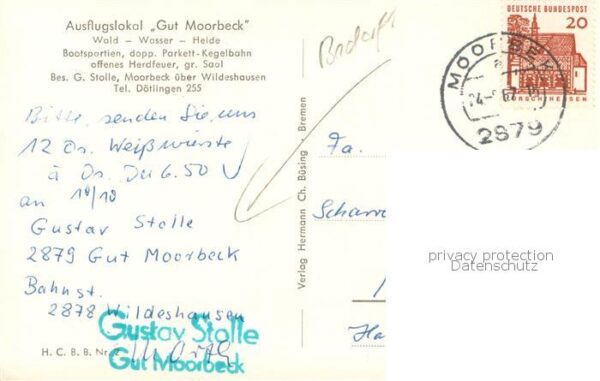 Ausflugslokal „Gut Moorbeck"
Wald – Wasser – Heide
Bootspartien, dopp. Parkett-Kegelbahn
offenes Herdfeuer, gr. Saal
Bes. G. Stolle, Moorbeck über Wildeshausen
Tel. Dötlingen 255
Bitte, senden Sie uns
12 Ds. Weißwürste
à Ds. DM 6.50
an
Gustav Stolle
2879 Gut Moorbeck
Bahnst.
2878 Wildeshausen
Gustav Stolle
Gut Moorbeck
H. C. B. B. Nr.
Verlag Hermann Ch. Büsing · Bremen
Fa.
DEUTSCHE BUNDESPOST
20
MOORBEK
a
2879
privacy protection
Datenschutz